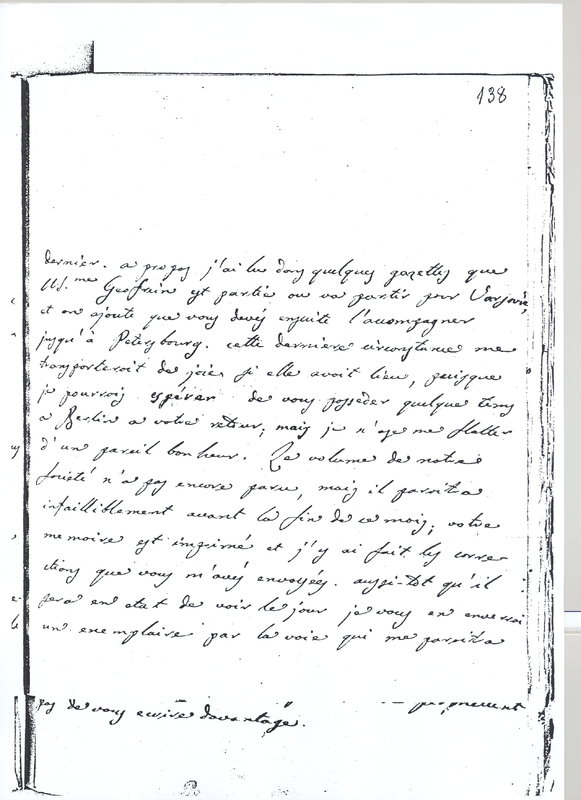 138
dernier. a propos j'ai lu dans quelques gazettes que
Md.me Geofrain est partie ou va partir pour Varsovie,
et on ajoute que vous devés ensuite l'accompagner
jusqu'à Petersbourg. cette derniere circonstance me
transporteroit de joie, si elle avoit lieu, puisque
je pourrois espérer de vous posseder quelque tems
a Berlin a votre retour; mais je n'ose me flatter
d'un pareil bonheur. Le volume de notre
societé n'a pas encore paru, mais il paroitra
infailliblement avant la fin de ce mois; votre
memoire est imprimé et j'y ai fait les corre-
ctions que vous m'avés envoyées. aussi-tot qu'il
sera en etat de voir le jour je vous en enverrai
un exemplaire par la voie qui me paroitra
pas de vous ecrire davantage.